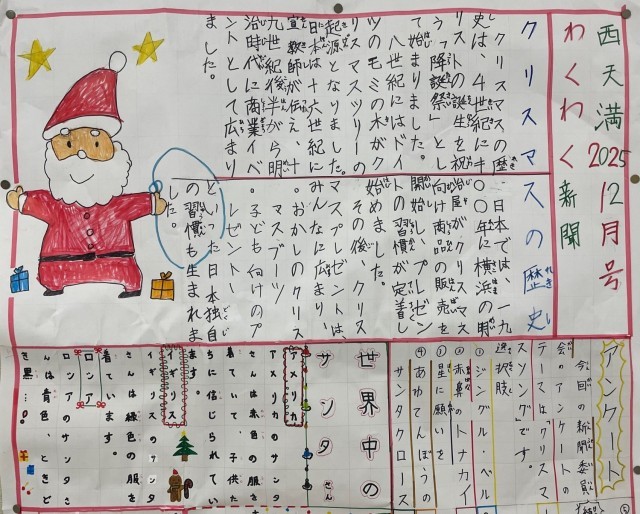 西天満2025 12月号
わくわく新聞
クリスマスの歴史
クリスマスの歴
史は、4世紀にキ
リストの誕生を祝
う「降誕祭」とし
て始まりました。
八世紀にはドイ
ツのモミの木がク
リスマスツリーの
起源となりました。
日本には十六世紀に
宣教師が伝え、十
九世紀後半から明
治時代に商業イベ
ントとして広まり
ました。
日本では、一九
〇〇年に横浜の明
治屋がクリスマス
向け商品の販売を
開始し、プレゼン
トの習慣が定着し
始めました。
その後、クリス
マスプレゼントは、
みんなに広まり、
・おかしのクリス
マスブーツ
・子ども向けのプ
レゼント
といった日本独自
の習慣も生まれま
した。
アンケート
今回の新聞委員
会のアンケートの
テーマは「クリスマ
スソング」です。
選択肢
①ジングル・ベル
②赤鼻のトナカイ
③星に願いを
④あわてんぼうの
サンタクロース
世界中の
サンタさん
アメリカ
アメリカのサンタ
さんは赤色の服を
着ていて、子供た
ちに信じられてい
ます。
イギリス
イギリスのサンタ
さんは緑色の服を
着ています。
ロシア
ロシアのサンタさ
んは青色、ときど
き黒…!